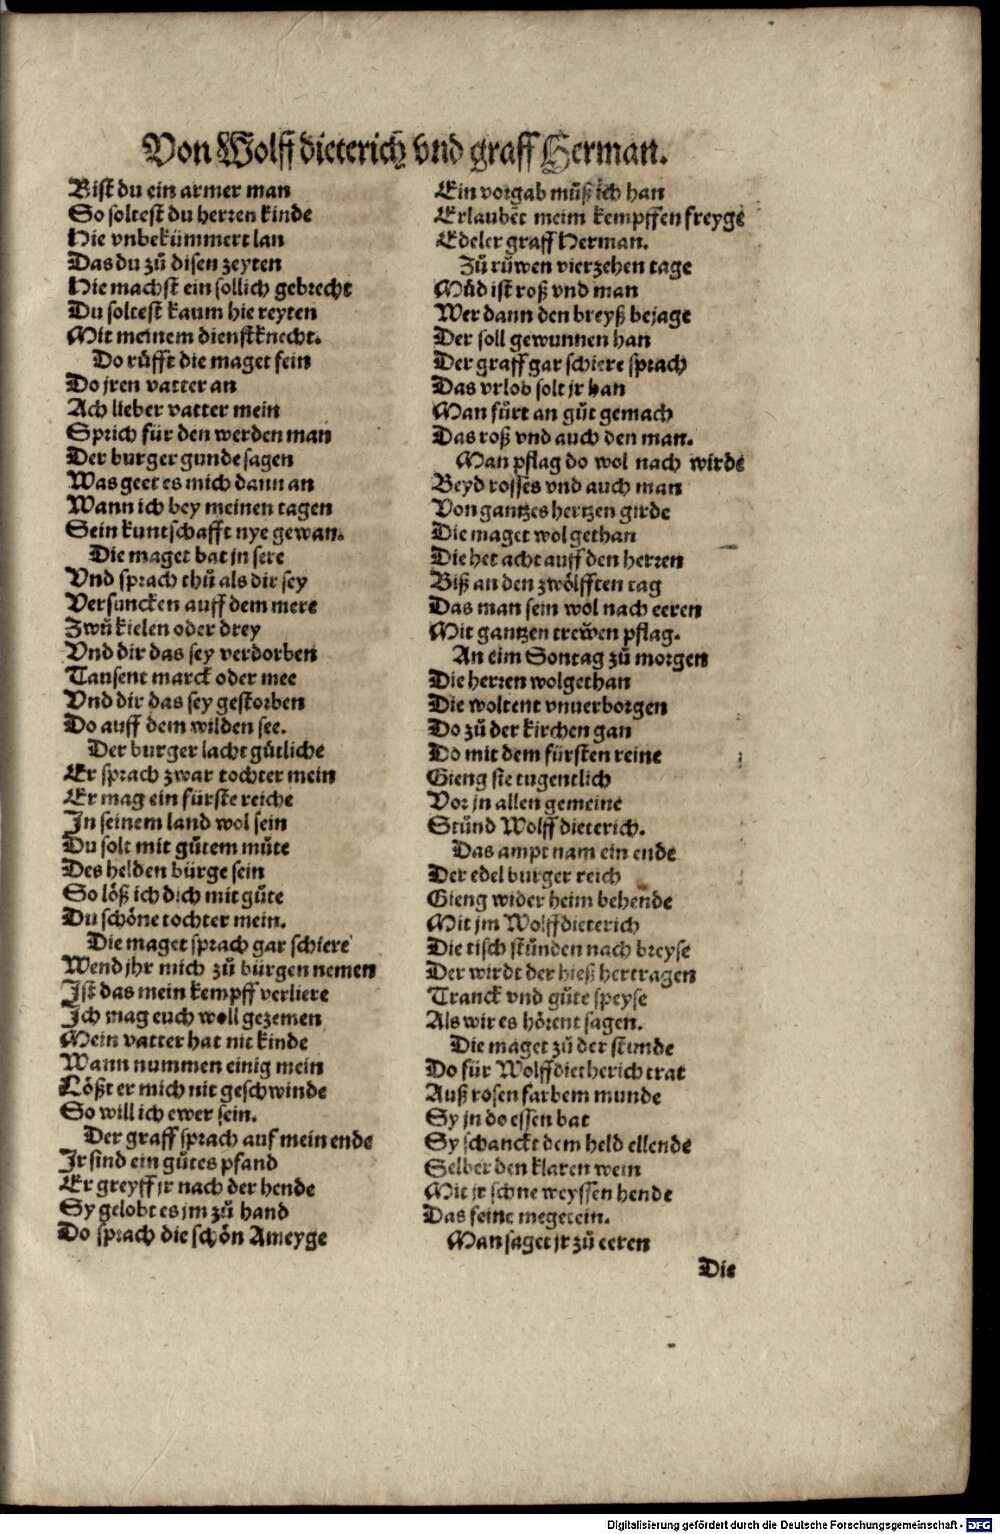 Von Wolff dieterich vnd graff Herman.
Bist du ein armer man
So soltest du herren kinde
Hie vnbekümmert lan
Das du zů disen zeyten
Hie machst ein sollich gebrecht
Du soltest kaum hie reyten
Mit meinem dienstknecht.
Do růfft die maget fein
Do jren vatter an
Ach lieber vatter mein
Sprich für den werden man
Der burger gunde sagen
Was geet es mich dann an
Wann ich bey meinen tagen
Sein kuntschafft nye gewan.
Die maget bat jn sere
Vnd sprach thů als dir sey
Versuncken auff dem mere
Zwů kielen oder drey
Vnd dir das sey verdorben
Tausent marck oder mee
Vnd dir das sey gestorben
Do auff dem wilden see.
Der burger lacht gůtliche
Er sprach zwar tochter mein
Er mag ein fürste reiche
In seinem land wol sein
Du solt mit gůtem můte
Des helden bürge sein
So löß ich dich mit gůte
Du schöne tochter mein.
Die maget sprach gar schiere
Wend jhr mich zů bürgen nemen
Ist das mein kempff verliere
Ich mag euch woll gezemen
Mein vatter hat nit kinde
Wann nummen einig mein
Lößt er mich nit geschwinde
So will ich ewer sein.
Der graff sprach auf mein ende
Ir sind ein gůtes pfand
Er greyff jr nach der hende
Sy gelobt es jm zů hand
Do sprach die schön Ameyge
Ein vorgab můß ich han
Erlaubet meim kempffen freyge
Edeler graff Herman.
Zů růwen vierzehen tage
Můd ist roß vnd man
Wer dann den breyß bejage
Der soll gewunnen han
Der graff gar schiere sprach
Das vrlob solt jr han
Man fůrt an gůt gemach
Das roß vnd auch den man.
Man pflag do wol nach wirde
Beyd rosses vnd auch man
Von gantzes hertzen girde
Die maget wol gethan
Die het acht auff den herren
Biß an den zwölfften tag
Das man sein wol nach eeren
Mit gantzen trewen pflag.
An eim Sontag zů morgen
Die herren wolgethan
Die woltent vnuerborgen
Do zů der kirchen gan
Do mit dem fürsten reine
Gieng sie tugentlich
Vor jn allen gemeine
Stůnd Wolff dieterich.
Das ampt nam ein ende
Der edel burger reich
Gieng wider heim behende
Mit jm Wolffdieterich
Die tisch stůnden nach breyse
Der wirdt der hieß hertragen
Tranck vnd gůte speyse
Als wir es hörent sagen.
Die maget zů der stunde
Do für Wolffdietherich trat
Auß rosen farbem munde
Sy jn do essen bat
Sy schanckt dem held ellende
Selber den klaren wein
Mit jr schne weyssen hende
Das feine megetein.
Man saget jr zů eeren
Die
Digitalisierung gefördert durch die Deutsche Forschungsgemeinschaft - DFG